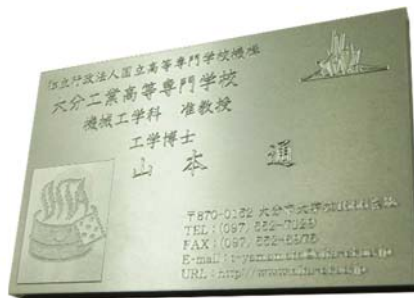 独立行政法人国立高等専門学校機構
大分工業高等専門学校
機械工学科 准教授
工学博士
山本 通
OITA
〒870-0152 大分市大字
TEL:(097)552-
FAX:(097)552-
E-mail:
URL: http://www.